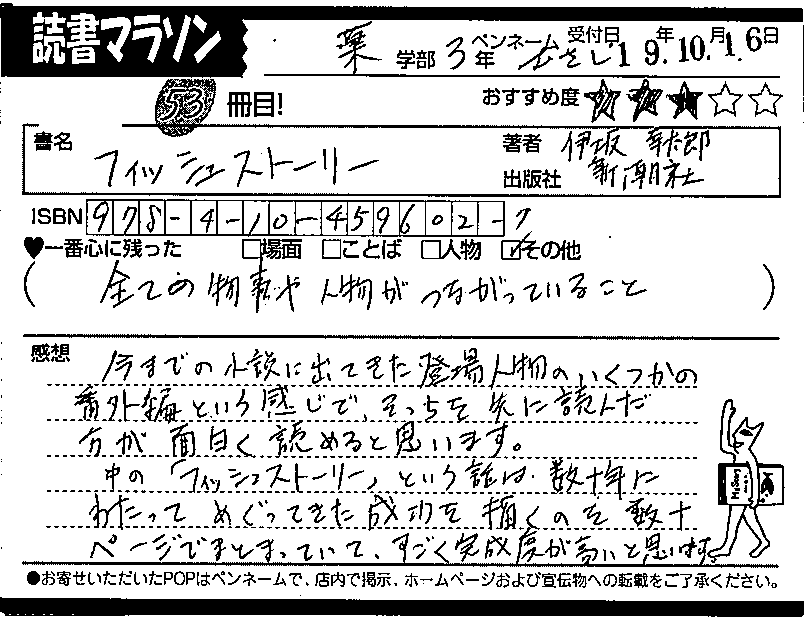 読書マラソン
薬 学部 3年 ペンネーム むさし 受付日 19.年10.月16日
53 冊目! おすすめ度 ★★★☆☆
書名 フィッシュストーリー 著者 伊坂 幸太郎
出版社 新潮社
ISBN 978-4-10-459602-7
♥一番心に残った □場面 □ことば □人物 ☑その他
(全ての物事や人物がつながっていること)
感想
今までの小説に出てきた登場人物のいくつかの
番外編という感じで、そっちを先に読んだ
方が面白く読めると思います。
中の「フィッシュストーリー」という話は、数十年に
わたってめぐってきた成功を描くのを数十
ページでまとまっていて、すごく完成度が高いと思います。
●お寄せいただいたPOPはペンネームで、店内で掲示、ホームページおよび宣伝物への転載をご了承ください。